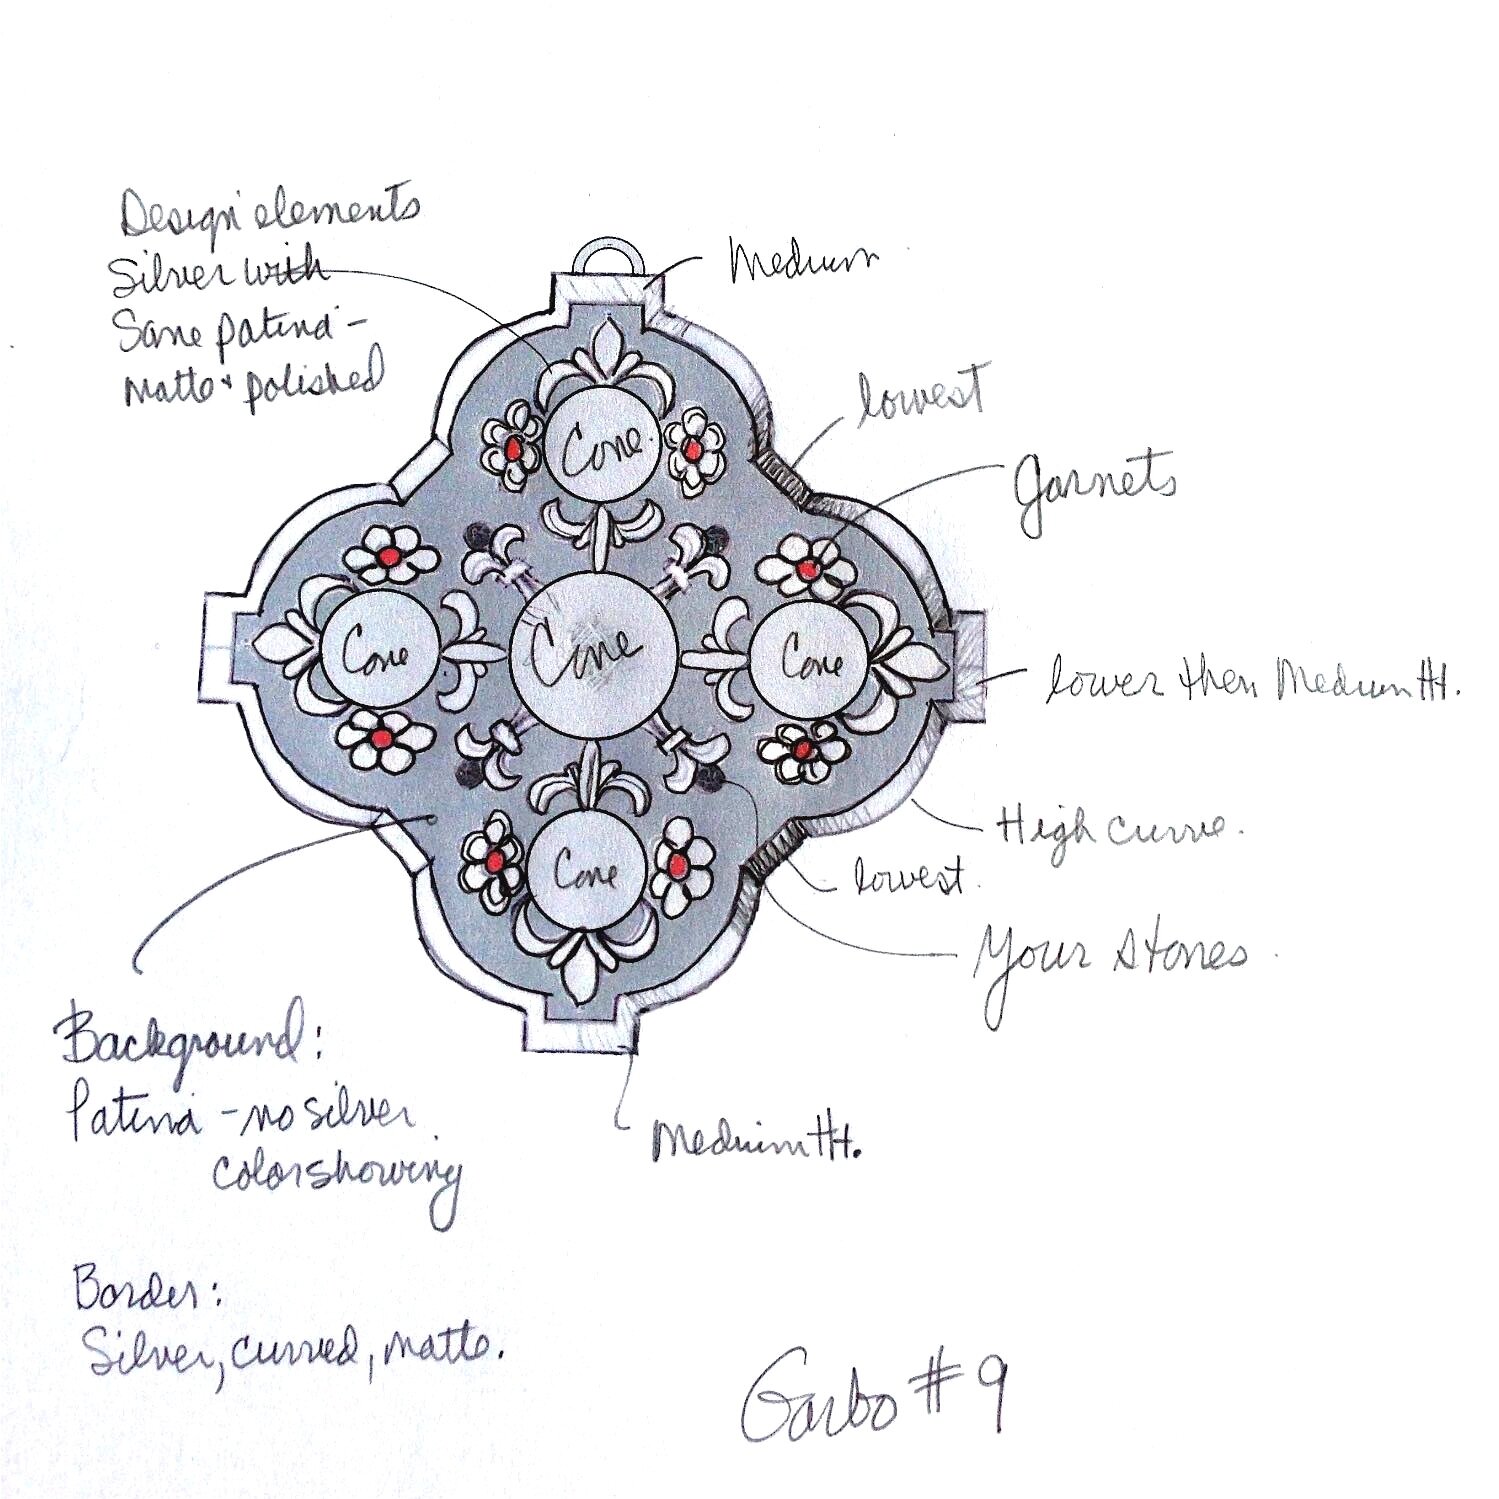 Design elements
Silver with
Same patina -
matte + polished
Medium
lowest
Garnets
Cone
Cone
Cone
Cone
Cone
lower then Medium Ht.
High curve.
lowest.
Your stones
Background:
Patina - no silver
color showing
Medium Ht.
Border:
Silver, curved, matte.
Garbo #9